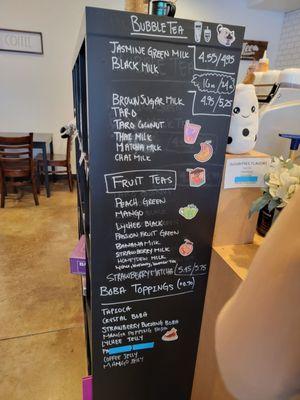 BUBBLE TEA
JASMINE GREEN MILK
4.55/4.95
BLACK MILK
16oz/24oz
BROWN SUGAR MILK
4.95/5.25
TARO
TARO COCONUT
THAI MILK
MATCHA MILK
CHAI MILK
FRUIT TEAS
PEACH GREEN
MANGO
LYCHEE BLACK
PASSION FRUIT GREEN
BANANA MILK
STRAWBERRY MILK
HONEYDEW MILK
STRAWBERRY MATCHA
5.45/5.75
BOBA TOPPINGS
TAPIOCA
CRYSTAL BOBA
STRAWBERRY BURSTING BOBA
MANGO POPPING BOBA
LYCHEE JELLY
COFFEE JELLY
MANGO JELLY